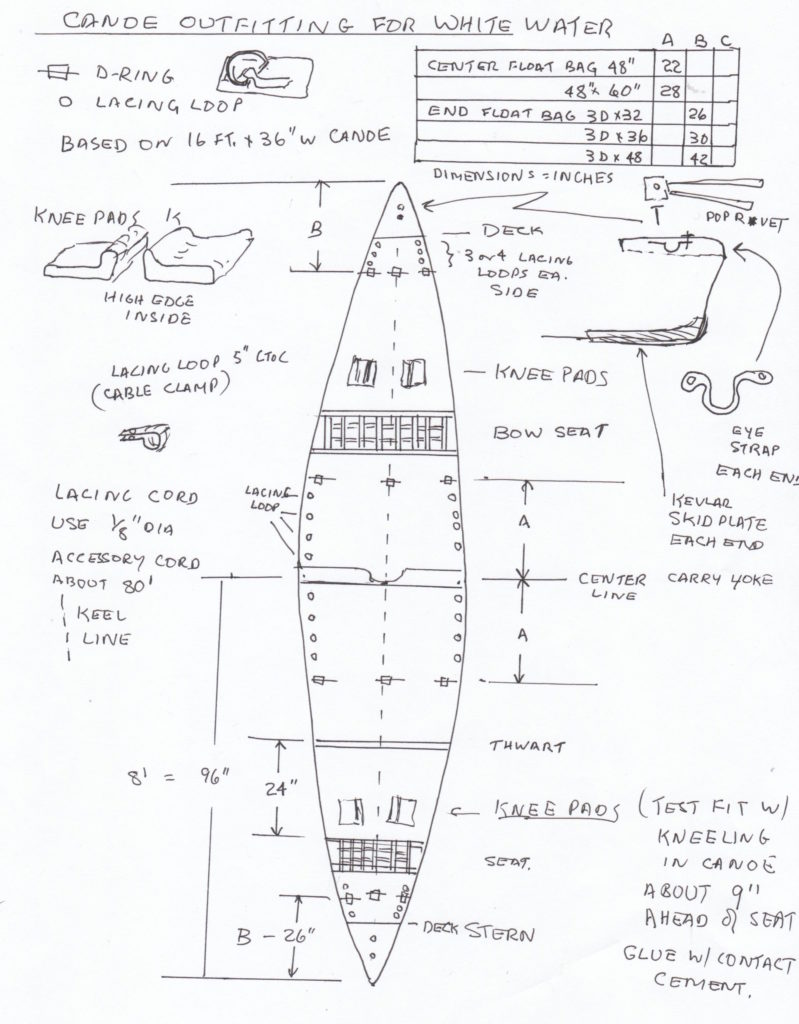 CANOE OUTFITTING FOR WHITE WATER
D-RING
O LACING LOOP
BASED ON 16 FT. x 36" W CANOE
A B C
CENTER FLOAT BAG 48" 22
48" x 60" 28
END FLOAT BAG 3D x 32 26
3D x 36 30
3D x 48 42
DIMENSIONS = INCHES
POP RIVET
KNEE PADS
HIGH EDGE
INSIDE
B
DECK
3 OR 4 LACING
LOOPS EA.
SIDE
LACING LOOP 5" CTOC
(CABLE CLAMP)
KNEE PADS
BOW SEAT
EYE
STRAP
EACH END
KEVLAR
SKID PLATE
EACH END
LACING CORD
USE 1/8" DIA
ACCESSORY CORD
ABOUT 80'
KEEL
LINE
LACING
LOOP
A
CENTER
LINE
CARRY YOKE
A
THWART
8' = 96"
24"
KNEE PADS (TEST FIT W/
KNEELING
IN CANOE
ABOUT 9"
AHEAD of SEAT
GLUE W/ CONTACT
CEMENT.
SEAT.
B - 26"
DECK STERN